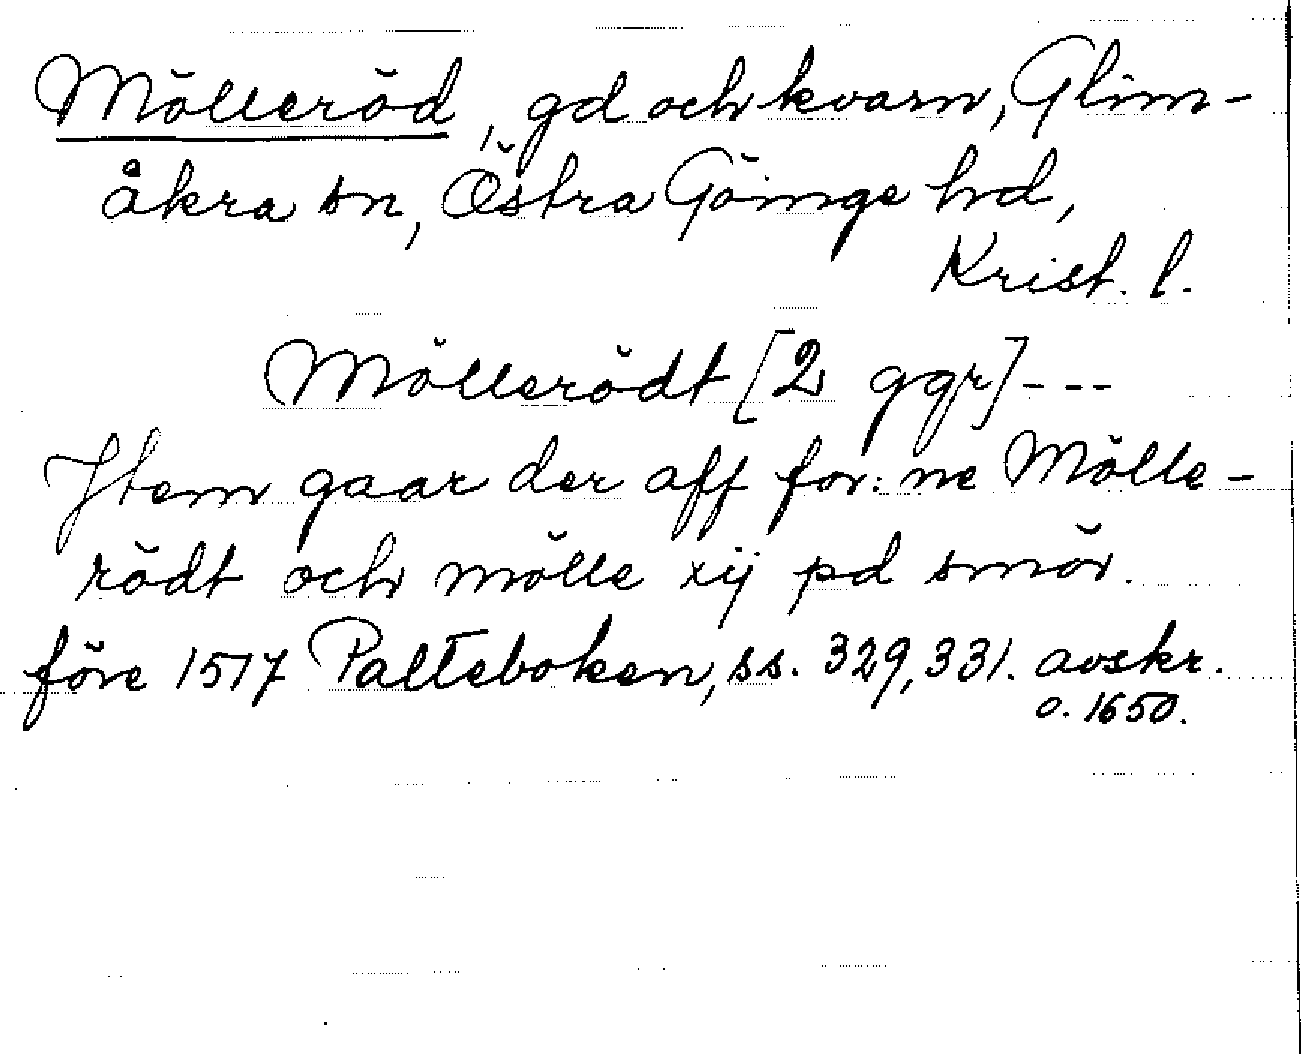 Mölleröd, gd och kvarn, Glim-
åkra sn, Östra Göinge hd,
Krist. l.
Möllerödt [2 ggr] ---
Jtem gaar der aff for: ne Mölle-
rödt och mölle xij pd smör.
före 1517 Palteboken, ss. 329, 331. avskr.
o. 1650.